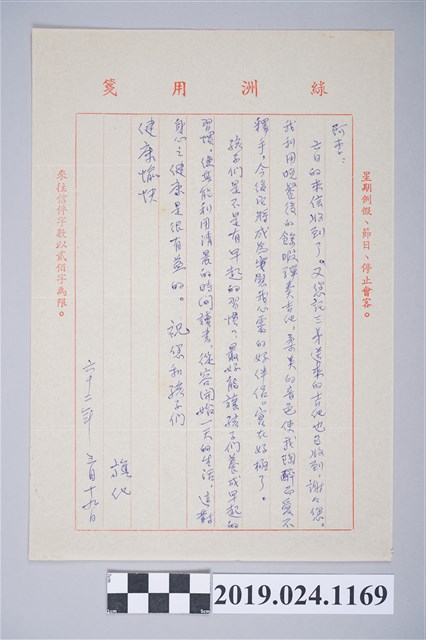 綠洲用箋
星期例假、節日、停止會客。
阿李：
六日的來信收到了。又您託三弟送來的吉他也已收到，謝々您。
我利用晚餐後的餘暇彈奏吉他，柔美的音色使我陶醉而愛不
釋手。今後它將成為賣與我心靈的好伴侶。實在好極了。
孩子們是不是有早起的習慣？最好能讓孩子們養成早起的
習慣，俾其能利用清晨的時間讀書，從容開始一天的生活，這對
身心之健康是很有益的。　祝您和孩子們
健康愉快
旗化
六十二年三月十九日
來往信件字數以貳佰字為限。
1cm
5cm
2019.024.1169